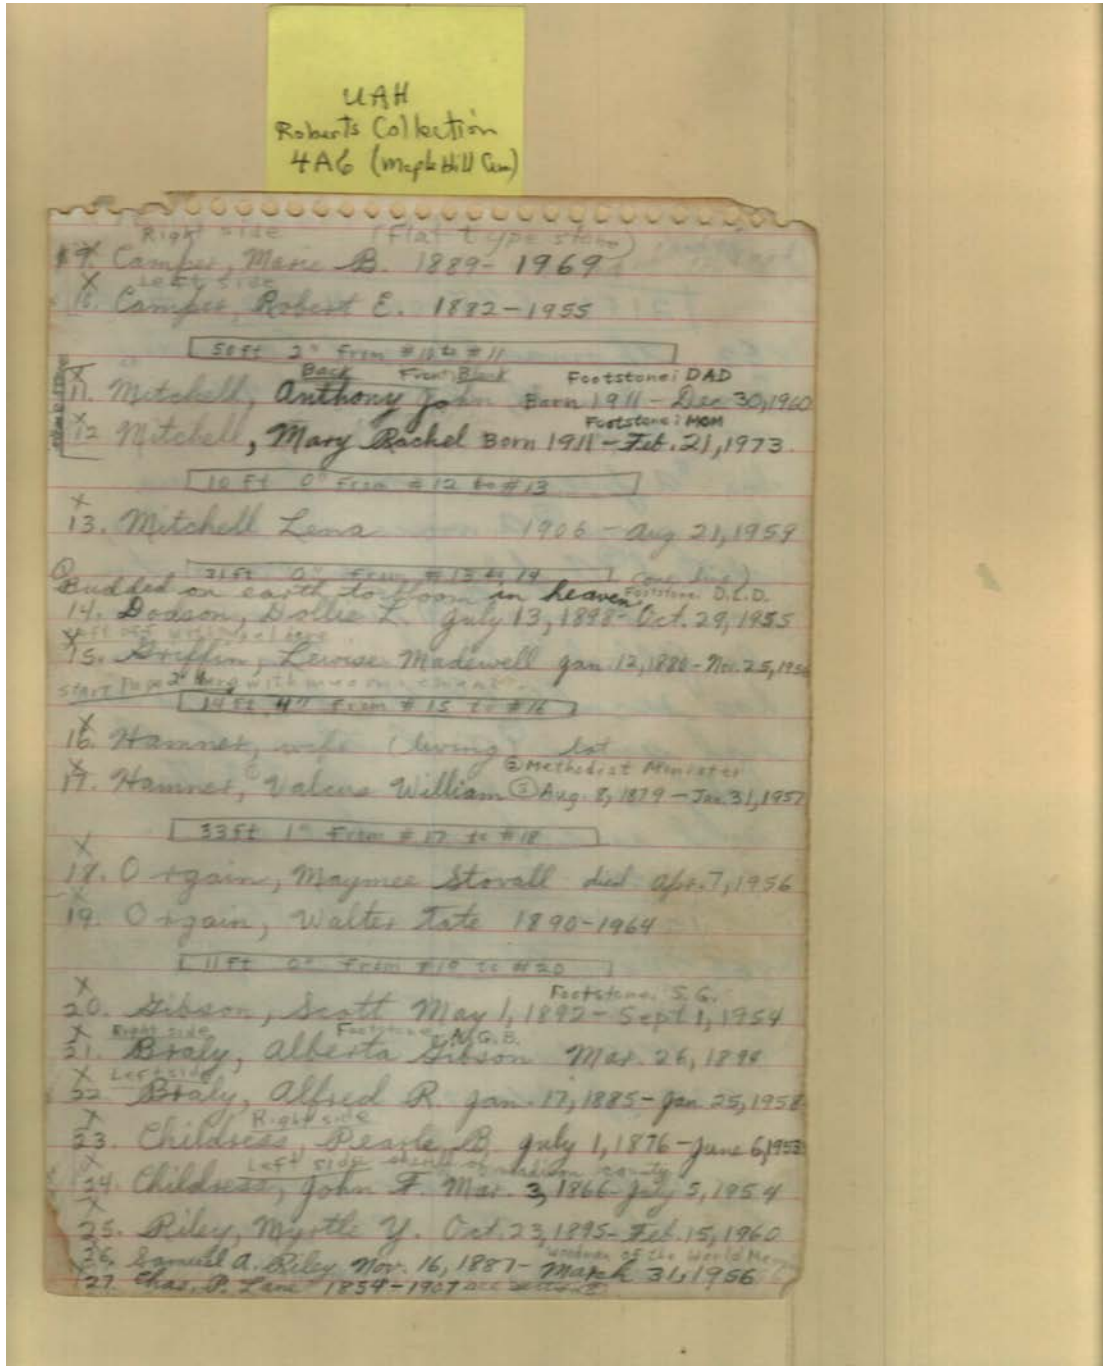 UAH
Roberts Collection
4A6 (Maple Hill Cem)
Right side (Flat type stone)
9. Camper, Marie B. 1889- 1969
X Left side
10. Camper, Robert E. 1882-1955
50 ft 2" From #10 to #11
X Back Front: Black Footstone: DAD
11. Mitchell, Anthony John Born 1911 - Dec 30, 1960
Footstone: MOM
12 Mitchell, Mary Rachel Born 1911 - Feb. 21, 1973.
10 ft 0" From #12 to #13
X
13. Mitchell Lena 1906 - Aug 21, 1959
31 ft 0" From #13 to 14 (one line)
Budded on earth to bloom in heaven. Footstone: D.L.D.
14. Dodson, Dollie L. July 13, 1898- Oct. 29, 1955
left off
X 15. Griffin, Lewise Madewell Jan. 12, 1880 - Nov. 25,
start Page 2 with
14 ft 4" From #15 to #16
X
16. Hamner, wife (living) lot
X ② Methodist Minister
17. Hamner, ① William ③ Aug. 8, 1879 - Jan. 31, 1957
33 ft 1" From #17 to #18
X
18. Orgain, Maymee Stovall died Apr. 7, 1956
X
19. Orgain, Walter Tate 1890-1964
11 ft 0" From #19 to #20
X Footstone: S.G.
20. Gibson, Scott May 1, 1892 - Sept 1, 1954
X Right side Footstone A.G.B.
21. Braly, Alberta Gibson Mar. 26,
X Left side
22. Braly, Alfred R. Jan. 17, 1885 - Jan. 25, 1958
X Right side
23. Childress, Pearle B. July 1, 1876 - June 6, 1953
X Left side sheriff of madison county
24. Childress, John F. Mar. 3, 1866- July 5, 1954
X
25. Riley, Myrtle Y. Oct. 23, 1895- Feb. 15, 1960
Woodmen of the World
26. Samuel A. Riley Nov. 16, 1887- March 31, 1956
27. Chas. P. Lane 1854-1907